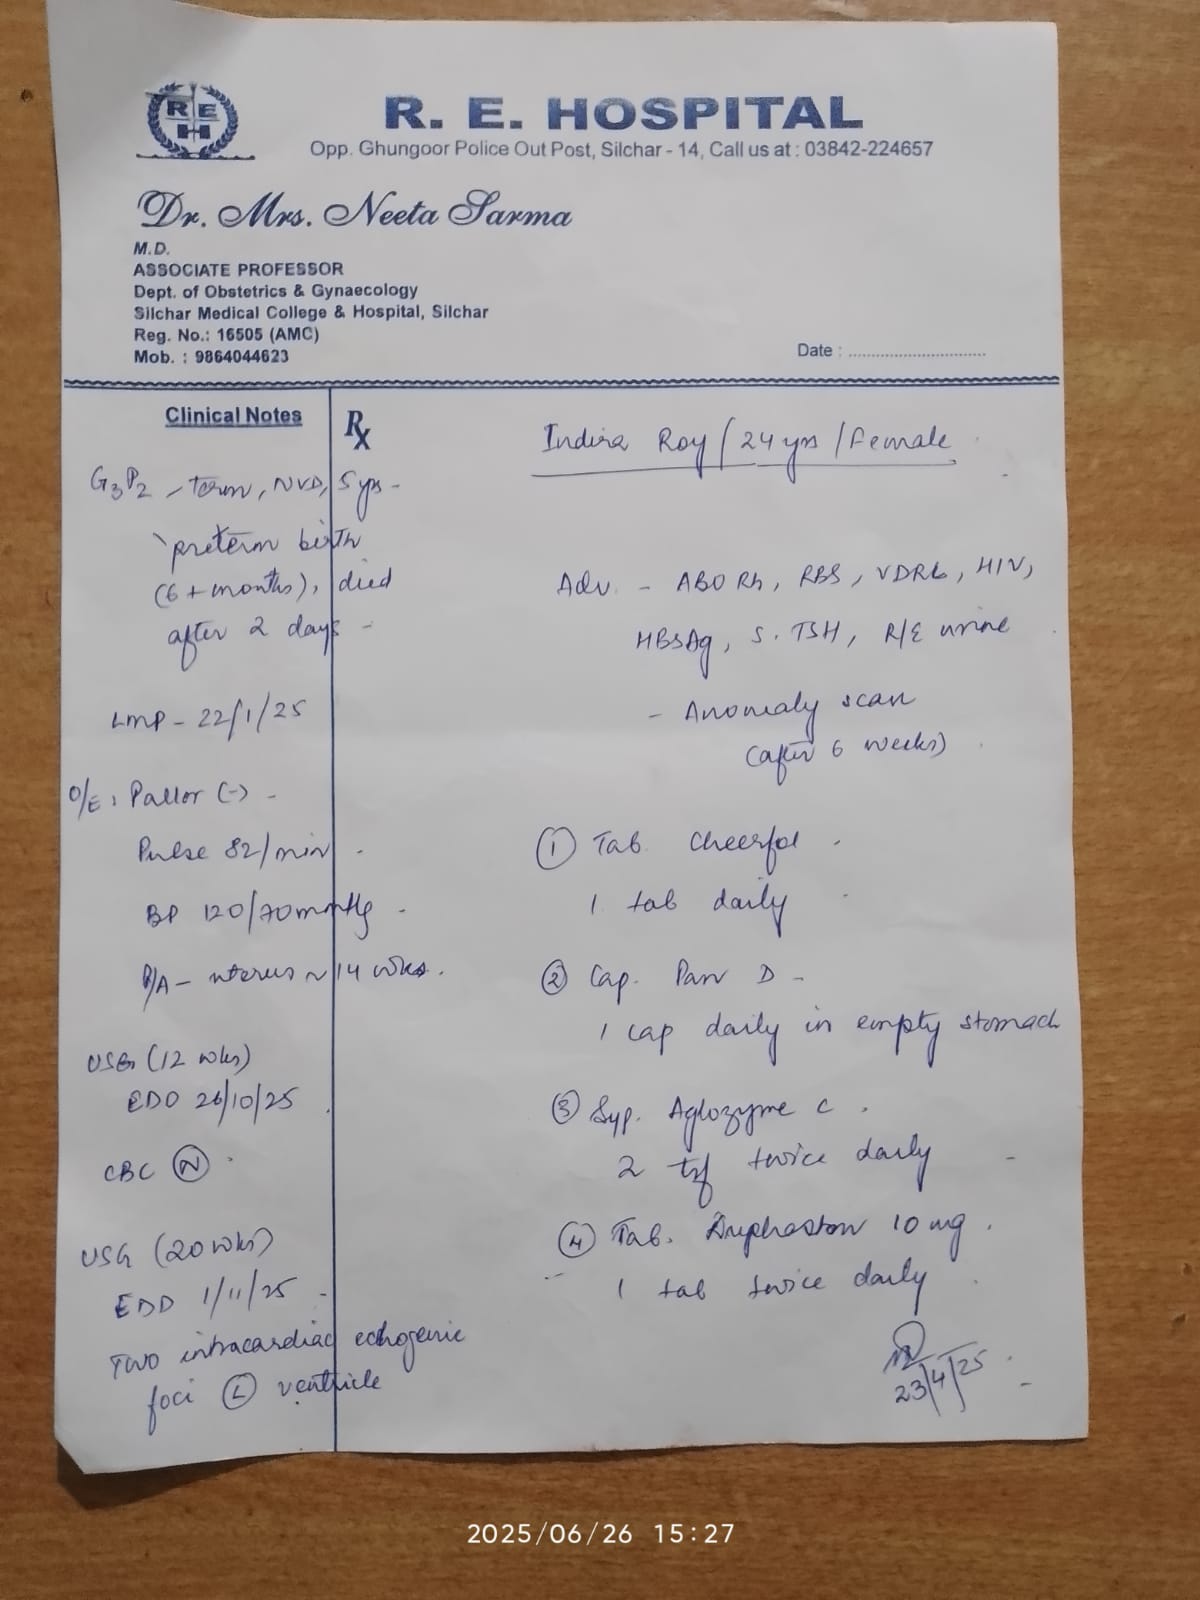 R E H
R. E. HOSPITAL
Opp. Ghungoor Police Out Post, Silchar - 14, Call us at : 03842-224657
Dr. Mrs. Neeta Sarma
M.D.
ASSOCIATE PROFESSOR
Dept. of Obstetrics & Gynaecology
Silchar Medical College & Hospital, Silchar
Reg. No.: 16505 (AMC)
Mob. : 9864044623
Date :
Clinical Notes
G3P2 - term, NVD, 5 yrs -
preterm birth
(6 + months), died
after 2 days -
LMP - 22/1/25
O/E : Pallor (-) -
Pulse 82/min
BP 120/70mmHg
P/A - uterus ~ 14 wks.
USG (12 wks)
EDD 26/10/25
CBC (N)
USG (20 wks)
EDD 1/11/25
Two intracardiac echogenic
foci (L) ventricle
Rx
Indira Roy / 24 yrs / Female
Adv. - ABO Rh, RBS, VDRL, HIV,
HBSAg, S. TSH, R/E urine
- Anomaly scan
(after 6 weeks)
(1) Tab. Cheerfol
1 tab daily
(2) Cap. Pan D -
1 cap daily in empty stomach
(3) Syp. Aglozyme C
2 tsf twice daily
(4) Tab. Duphaston 10 mg.
1 tab twice daily
23/4/25
2025/06/26 15:27